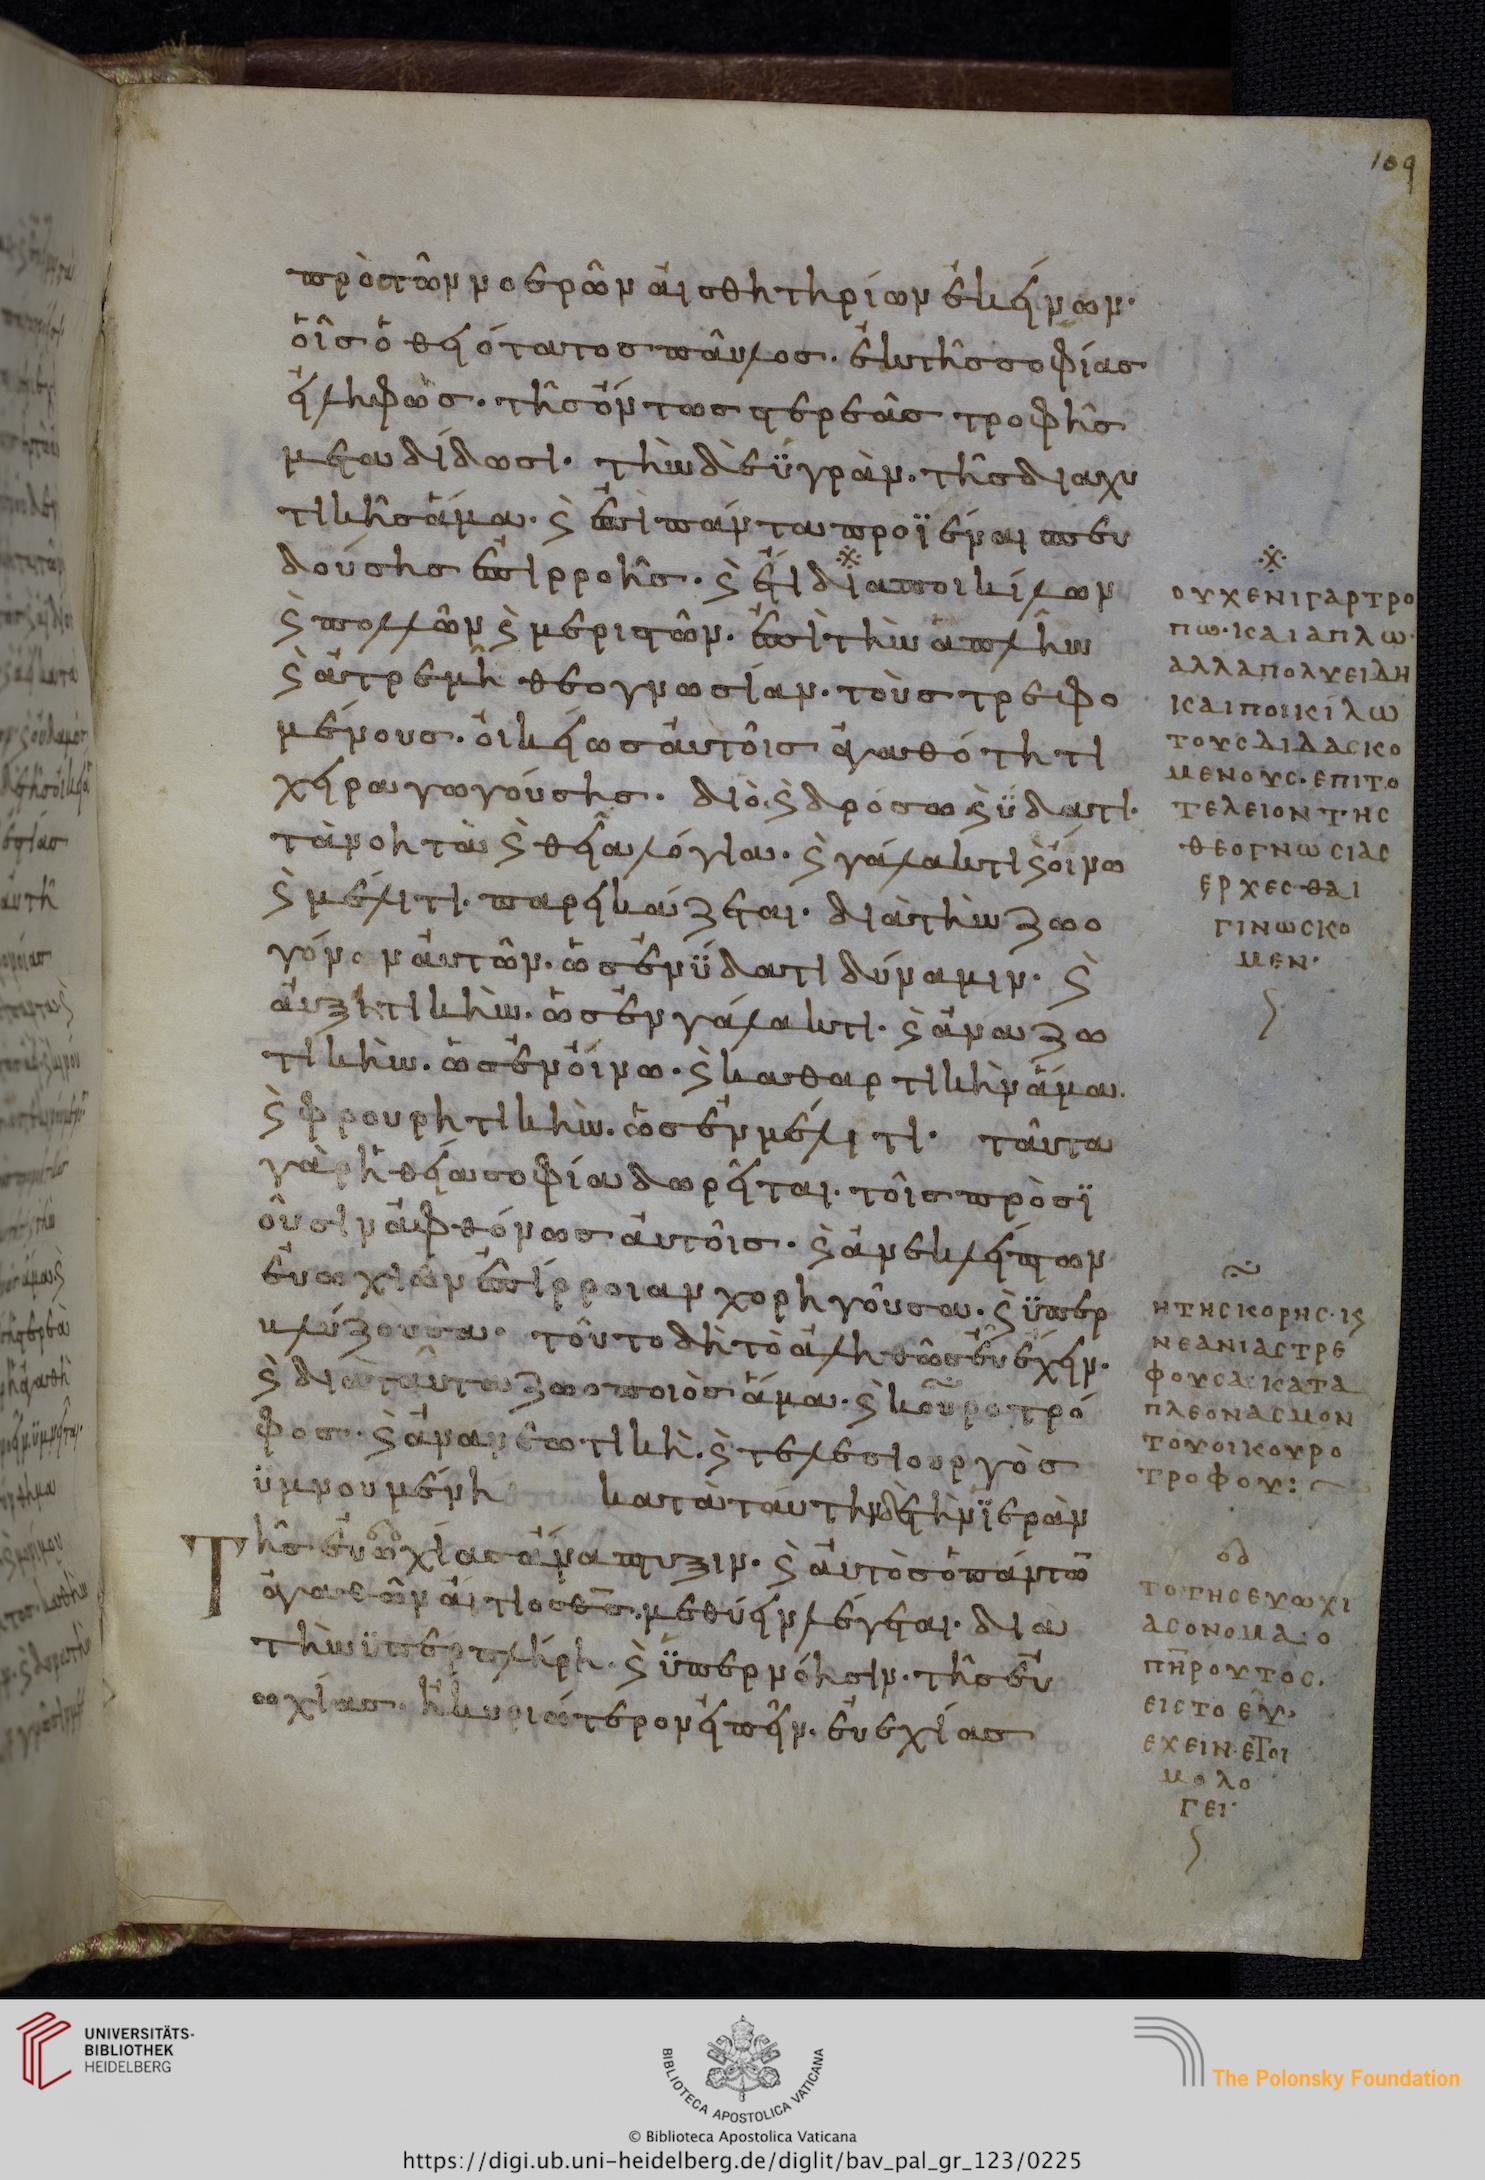 109
πρὸς τῶν νοερῶν αἰσθητηρίων ἐκείνων·
οἷς ὁ θειότατος παῦλος. ἐκ τῆς σοφίας
εἰληφὼς. τῆς ὄντως στερεᾶς τροφῆς
μεταδίδωσι. τὴν δὲ ϋγρὰν. τῆς διαχυ
τικῆς ἅμα. ϗ ἐπὶ πάντα προϊέναι σπευ
δούσης ἐπιρροῆς. ϗ ἔτι διαποικίλων
ϗ πολλῶν ϗ μεριστῶν. ἐπὶ τὴν ἁπλῆν
ϗ ἀτρεμῆ θεογνωσίαν. τοὺς τρεφο
μένους. οἰκείως αὐτοῖς ἀγαθότητι
χειραγωγούσης. διὸ ϗ δρόσω ϗ ϋδατι.
τὰ νοητὰ ϗ θεῖα λόγια. ϗ γάλακτι ϗ οἴνω
ϗ μέλιτι. παρεικάζεται. διὰ τὴν ζωο
γόνον αὐτῶν. ὡς ἐν ϋδατι δύναμιν. ϗ
αὐξητικὴν. ὡς ἐν γάλακτι. ϗ ἀναζω
τικὴν. ὡς ἐν οἴνω. ϗ καθαρτικὴν ἅμα.
ϗ φρουρητικὴν. ὡς ἐν μέλιτι. ταῦτα
γὰρ ἡ θεία σοφία δωρεῖται. τοῖς προσϊ
οῦσιν ἀφθόνως αὐτοῖς. ϗ ἀνεκλείπτων
εὐωχιῶν ἐπίρροιαν χορηγοῦσα. ϗ ϋπερ
κλύζουσα. τοῦτο δὴ τὸ ἀληθῶς εὐ ἔχειν.
ϗ διὰ ταῦτα ζωοποιὸς ἅμα. ϗ κουροτρό
φος. ϗ ἀνανεωτικὴ. ϗ τελεσιουργὸς
ϋμνουμένη κατὰ ταύτην δὲ τὴν ϊερὰν
Τῆς εὐωχίας ἀνάπτυξιν. ϗ αὐτὸς ὁ πάντω̅
ἀγαθῶν αἴτιος θ̅ς̅. μεθύειν λέγεται. διὰ
τὴν ϋπερπλήρη. ϗ ϋπερ νόησιν. τῆς εὐ
ωχίας. ἢ κυριώτερον εἰπεῖν. εὐεχίας
ΟΥΧΕΝΙΓΑΡΤΡΟ
ΠΩ·ΚΑΙΑΠΛΩ·
ΑΛΛΑΠΟΛΥΕΙΔΗ
ΚΑΙΠΟΙΚΙΛΩ
ΤΟΥΣΔΙΔΑΣΚΟ
ΜΕΝΟΥΣ·ΕΠΙΤΟ
ΤΕΛΕΙΟΝΤΗΣ
ΘΕΟΓΝΩΣΙΑΣ
ΕΡΧΕΣΘΑΙ
ΓΙΝΩΣΚΟ
ΜΕΝ·
ΗΤΗΣΚΟΡΗΣ·ϗ
ΝΕΑΝΙΑΣΤΡΕ
ΦΟΥΣΑ·ΚΑΤΑ
ΠΛΕΟΝΑΣΜΟΝ
ΤΟΥΟΙΚΟΥΡΟ
ΤΡΟΦΟΥ:
ΤΟΤΗΣΕΥΩΧΙ
ΑΣΟΝΟΜΑ·Ο
Π̅Η̅ΡΟΥΤΟΣ.
ΕΙΣΤΟ ΕΥ
ΕΧΕΙΝ·ΕΤΟΙ
ΜΟΛΟ
ΓΕΙ·
UNIVERSITÄTS-
BIBLIOTHEK
HEIDELBERG
BIBLIOTECA APOSTOLICA VATICANA
The Polonsky Foundation
© Biblioteca Apostolica Vaticana
https://digi.ub.uni-heidelberg.de/diglit/bav_pal_gr_123/0225